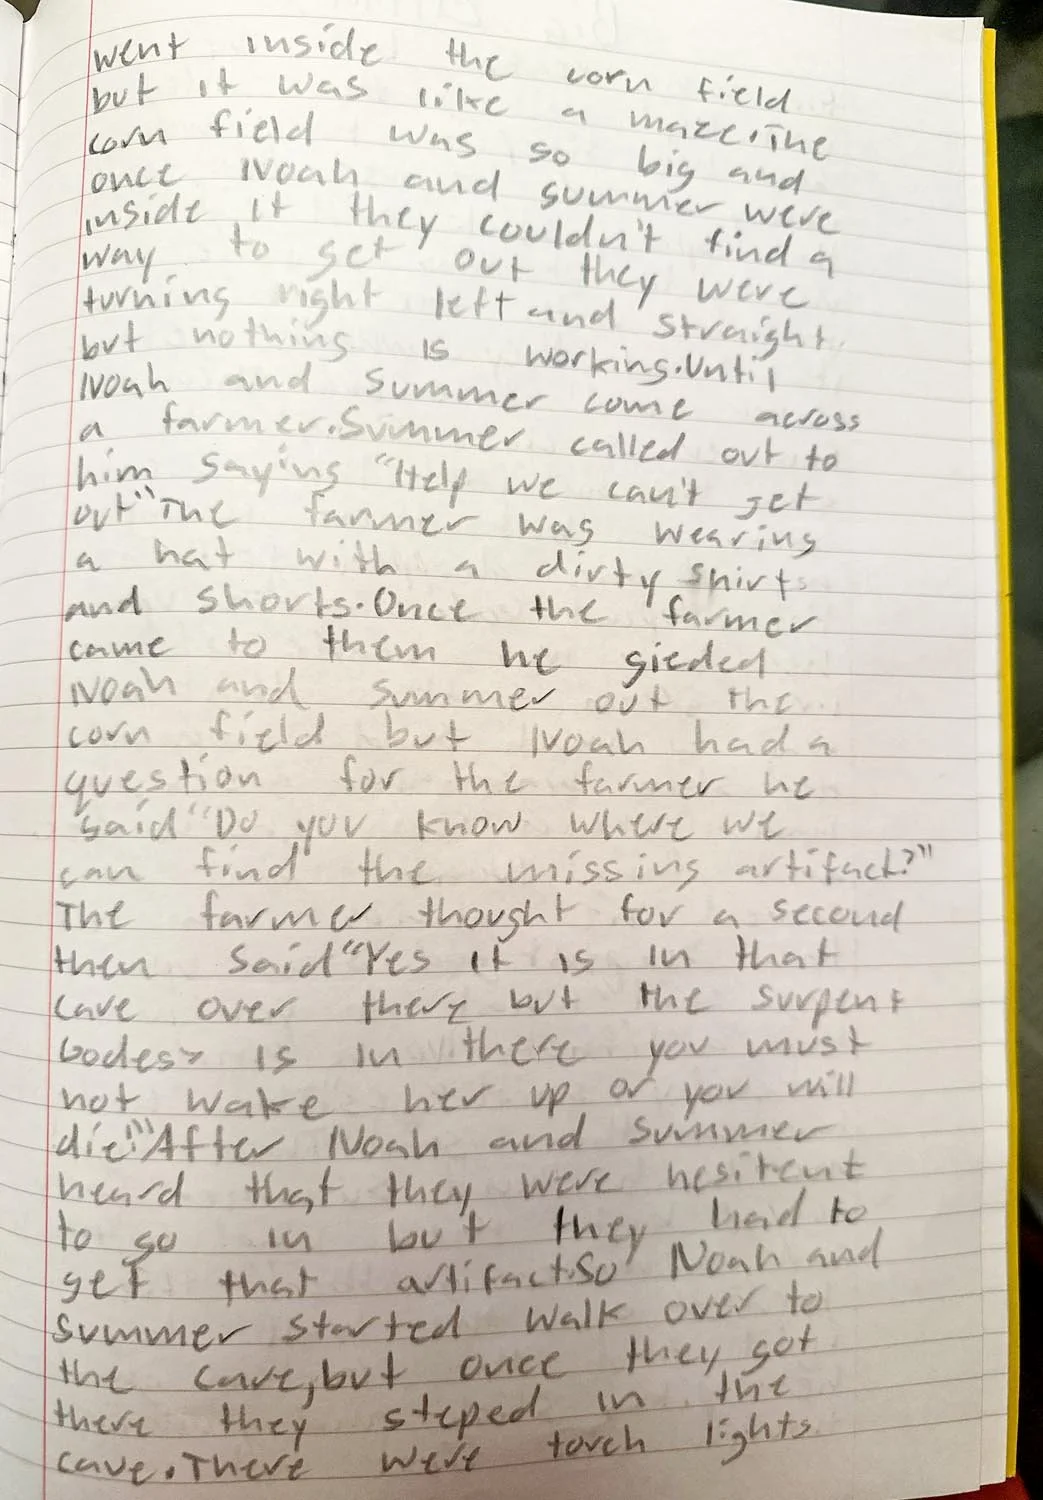 went inside the corn field
but it was like a maze. The
corn field was so big and
once Noah and summer were
inside it they couldn't find a
way to get out they were
turning right left and straight
but nothing is working. Until
Noah and Summer come across
a farmer. Summer called out to
him saying "Help we can't get
out" The farmer was wearing
a hat with a dirty shirts
and shorts. Once the farmer
came to them he gieded
Noah and summer out the
corn field but Noah had a
question for the farmer he
said "Do you know where we
can find the missing artifact?"
The farmer thought for a second
then said "Yes it is in that
cave over there but the surpent
is in there you must
not wake her up or you will
die!" After Noah and summer
heard that they were hesitent
to go in but they had to
get that artifact. So Noah and
summer started walk over to
the cave, but once they got
there they steped in the
cave. There were torch lights